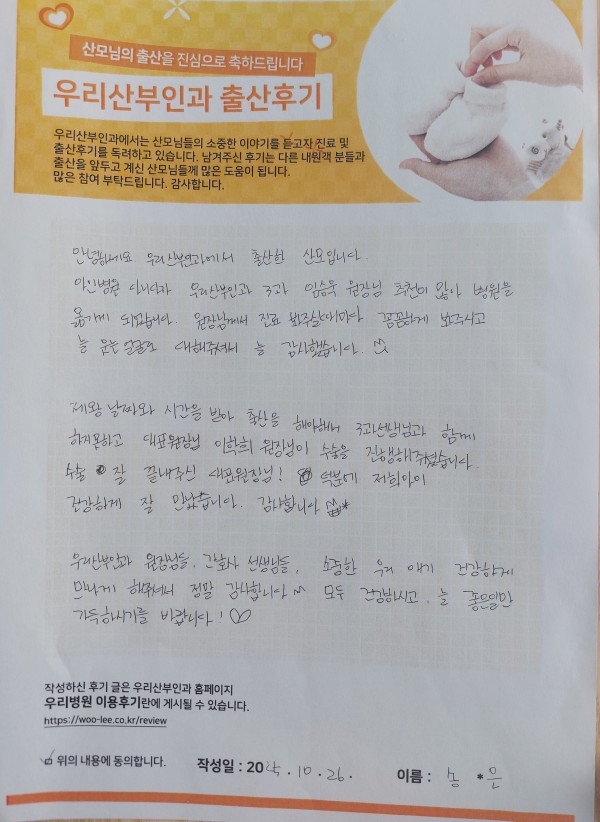 산모님의 출산을 진심으로 축하드립니다
우리산부인과 출산후기
우리산부인과에서는 산모님들의 소중한 이야기를 듣고자 진료 및
출산후기를 독려하고 있습니다. 남겨주신 후기는 다른 내원객 분들과
출산을 앞두고 계신 산모님들께 많은 도움이 됩니다.
많은 참여 부탁드립니다. 감사합니다.
안녕하세요 우리산부인과에서 출산한 산모입니다.
타인병원 다니다가 우리산부인과 3과 임승욱 원장님 추천이 많아 병원을
옮기게 되었습니다. 원장님께서 진료 봐주실때마다 꼼꼼하게 봐주시고
늘 웃는얼굴로 대해주셔서 늘 감사했습니다.
제왕 날짜와 시간을 받아 출산을 해야해서 3과선생님과 함께
하지못하고 대표원장님 이학희 원장님이 수술을 진행해주셨습니다.
수술 잘 끝내주신 대표원장님! 덕분에 저희아이
건강하게 잘 만났습니다. 감사합니다
우리산부인과 원장님들, 간호사 선생님들, 소중한 우리 애기 건강하게
만나게 해주셔서 정말 감사합니다 모두 건강하시고, 늘 좋은일만
가득하시기를 바랍니다!
작성하신 후기 글은 우리산부인과 홈페이지
우리병원 이용후기란에 게시될 수 있습니다.
https://woo-lee.co.kr/review
위의 내용에 동의합니다. 작성일 : 2025.10.26. 이름 : *은